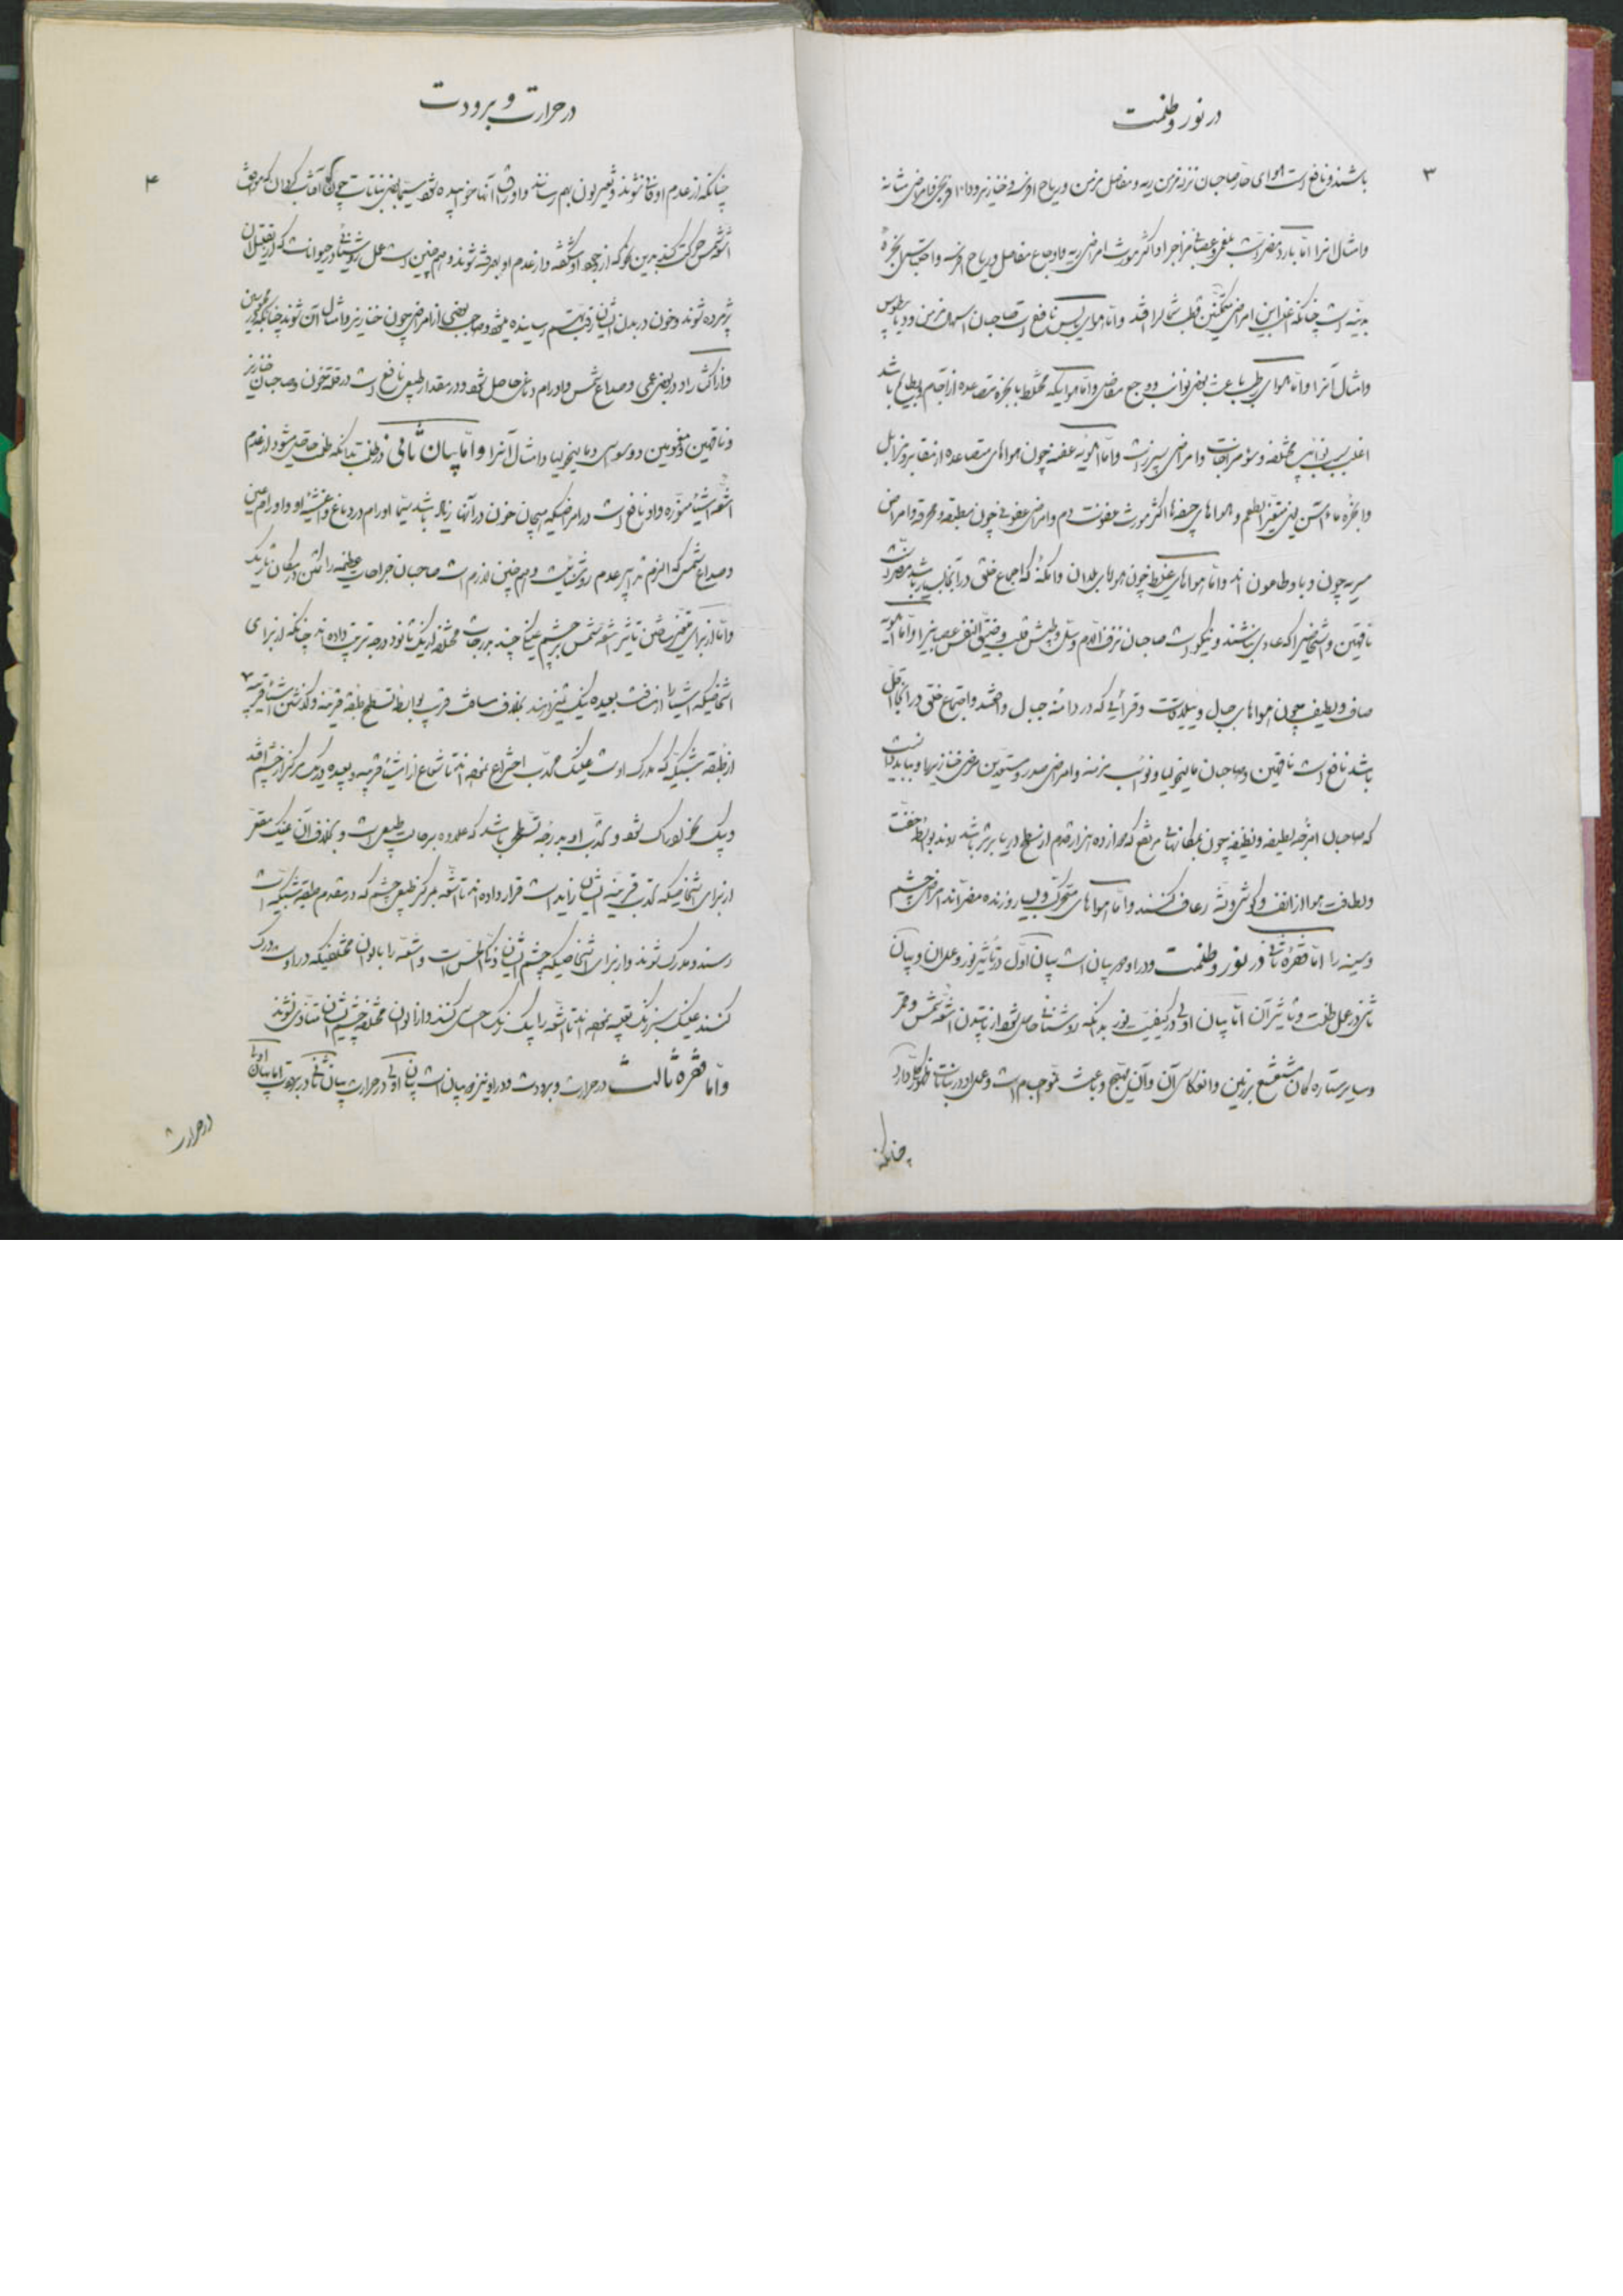 در نور و ظلمت
۳
باشند و نافع است هوای حار صاحبان نزله مزمن ریه و مفاصل مزمن و ریاح
و امثال آنرا اما بارد مضر است بلغمی و عصبانی مزاج را و اکثر مورث امراض ریه و اوجاع مفاصل و ریاح
بدنیه است چنانکه اغلب این امراض متمکنین قطب شمال را افتد و اما هوای یابس نافع است صاحبان اسهال مزمن و دیابیطوس
و امثال آنرا و اما هوای رطب باعث بعضی نوائب و وجع مفاصل و اما هوائیکه مختلط با بخره متصاعده از آجام و بطایح باشد
اغلب سبب نوائب مختلفه و سوء مزاجات و امراض سپرز است و اما اهویه عفنه چون هواهای متصاعده از مقابر و مزابل
و ابخره ماء آسن یعنی متغیر الطعم و هواهای جیفه‌ها اکثر مورث عفونت دم و امراض عفونی چون مطبقه و محرقه و امراض
مسریه چون وبا و طاعون اند و اما هواهای غلیظ چون هوای بلدان و امکنه که اجماع خلق در آنجا بسیار باشد مضر است
ناقهین و اشخاصیرا که عادی نباشند و نیکو است صاحبان نزف الدم و سل و طپش قلب و ضیق النفس عصبانی را و اما اهویه
صاف و لطیف چون هواهای جبال و ییلاقات و قرائی که در دامنه جبال واقعند و اجتماع خلق در آنجا اقل
باشد نافع است ناقهین و صاحبان مالیخولیا و نوائب مزمنه و امراض صدر و مستعدین مرض خنازیر را و بباید دانست
که صاحبان امزجه لطیفه و نظیفه چون بمکانهای مرتفع که از ده هزار قدم از سطح دریا برتر باشد روند بواسطه خفت
و لطافت هوا از انف و گوش و لثه رعاف کنند و اما هواهای متحرک و بسیار وزنده مضر اند امراض چشم
و سینه را اما فقره ثانی در نور و ظلمت و در او دو بیان است بیان اول در تأثیر نور و عمل آن و بیان
ثانی در عمل ظلمت و تأثیر آن اما بیان اولی در کیفیت نور بدانکه روشنائی حاصل شود از تابیدن اشعه شمس و قمر
و سایر ستاره‌گان مشعشع بر زمین و انعکاس آن و آن مهیج و باعث نمو اجسام است و عمل او در نباتات ظهور کلی دارد
چنانکه
در حرارت و برودت
۴
چنانکه از عدم او فانی شوند و تغییر لون بهم رسانند و اوراق آنها خوابیده شود سیما بعضی نباتات چون گل آفتاب گردان که موافق
اشعه شمس حرکت کند بدین نحو که از وجود او شکفته و از عدم او بهم رفته شوند و همچنین است عمل روشنائی در حیوانات که از تقلیل آن
پژمرده شوند و خون در بدن ایشان رقت بهم رسانیده مبیض و صاحب بعضی از امراض چون خنازیر و امثال آن شوند چنانکه محبوسین
و از اکثار او در بعضی عمی و صداع شمس و اورام دماغی حاصل شود و در مقدار طبیعی نافع است در قلة خون و صاحبان خنازیر
و ناقهین و مغمومین و وسواسی و مالیخولیا و امثال آنرا و اما بیان ثانی در ظلمت بدانکه ظلمت حاصل میشود از عدم
اشعه اشیاء منوره و او نافع است در امراضیکه هیجان خون در آنها زیاد باشد سیما اورام در دماغ و اغشیه او و اورام عین
و صداع شمس که الزم تدابیر عدم روشنائیست و همچنین لازم است صاحبان جراحات عظیمه را سکنی در مکان تاریک
و اما از برای تشخیص تأثیر اشعه شمس بر چشم عینکی چند بدرجات مختلفه از یک تا نود درجه ترتیب داده‌اند چنانکه از برای
اشخاصیکه اشیاء را از مسافت بعیده نیک تمیز دهند بخلاف مسافت قریب بواسطه تسطح طبقه قرنیه و گذشتن اشیاء قریبه
از طبقه شبکیه که مدرک اوست عینک محدب اختراع نموده‌اند تا شعاع از اشیاء قریبه و بعیده در یک مرکز از چشم افتد
و یک نحو ادراک شود و تحدب او بدرجه تسطحی باشد که علاوه بر حالت طبیعی است و بخلاف آن عینک مقعر
از برای اشخاصیکه تحدب قرنیه ایشان زاید است قرار داده‌اند تا اشعه بمرکز طبیعی چشم که در مقدم طبقه شبکیه است
رسند و مدرک شوند و از برای اشخاصیکه چشم ایشان ذکی الحس است و اشعه را بالوان مختلفیکه در اوست درک
کنند عینک سبز رنگ تعبیه نموده‌اند تا اشعه را یک رنگ احساس کنند و از الوان مختلفه چشم ایشان متأذی نشوند
و اما فقره ثالث در حرارت و برودت و در او نیز دو بیان است بیان اولی در حرارت بیان ثانی در برودت اما بیان اولی
در حرارت